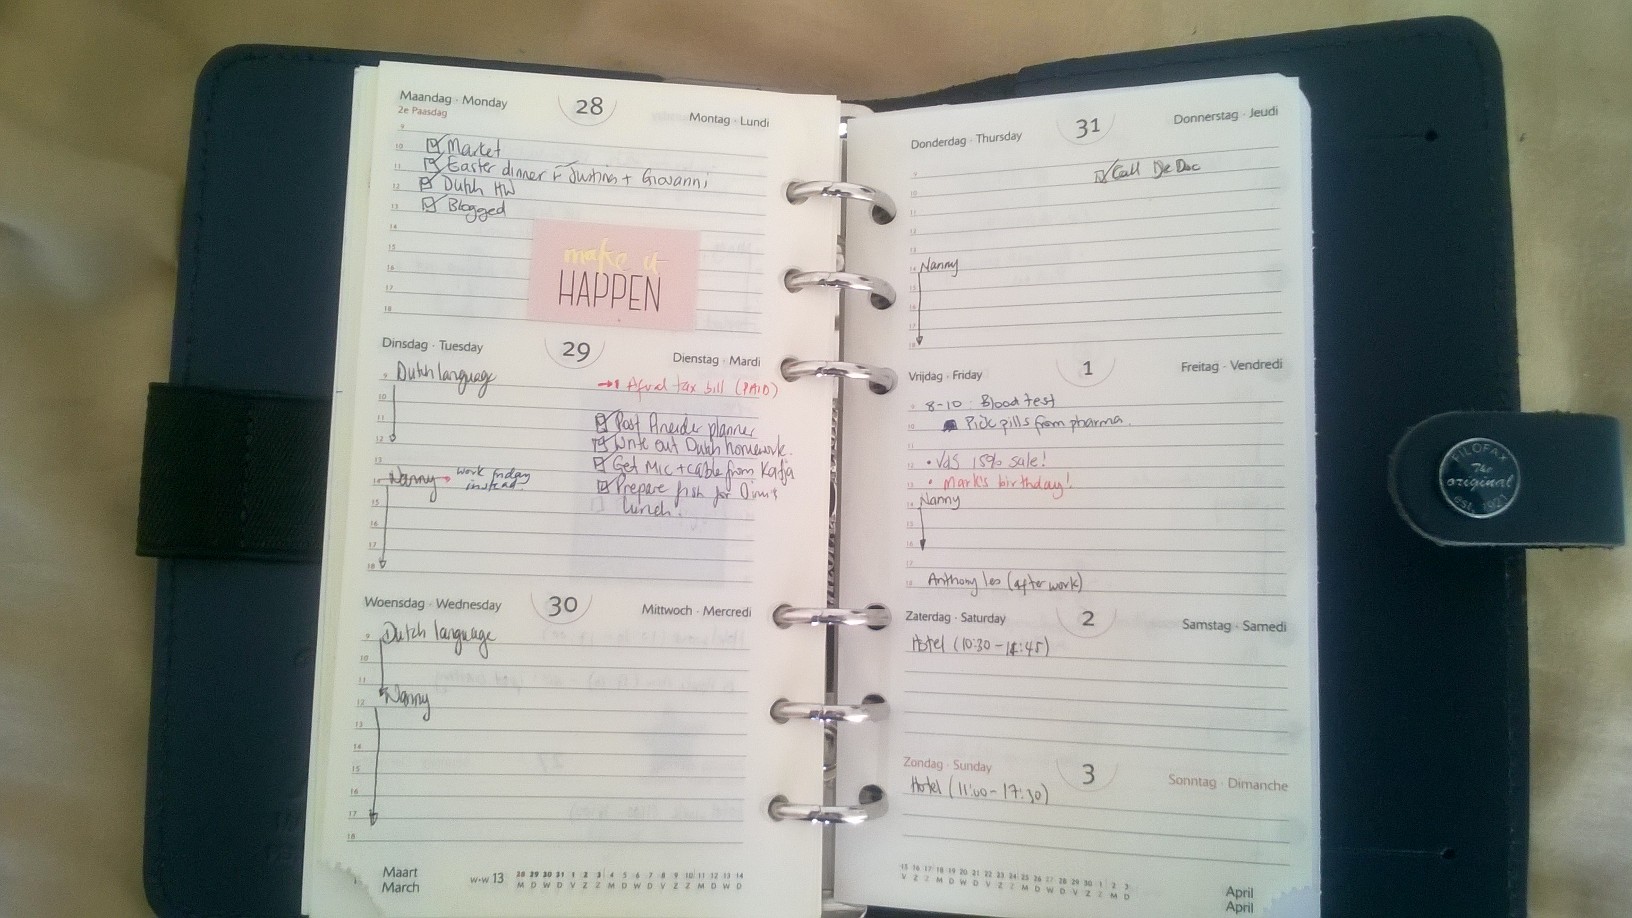 Maandag · Monday 28 Montag · Lundi
2e Paasdag
9
10 Market
11 Easter dinner Justina + Giovanni
12 Dutch HW
13 Blogged
14
15
16
17
18
make it
HAPPEN
Dinsdag · Tuesday 29 Dienstag · Mardi
9 Dutch language
tax bill (PAID)
10
11 Post planner
12 Write out Dutch homework.
13 Get Mic + cable from Katja
14 Nanny → work friday
instead.
Prepare fish for
lunch.
15
16
17
18
Woensdag · Wednesday 30 Mittwoch · Mercredi
9 Dutch language
10
11
12 Nanny
13
14
15
16
17
18
Maart
March
w•w 13
28 29 30 31 1 2 3 4 5 6 7 8 9 10 11 12 13 14
M D W D V Z Z M D W D V Z Z M D W D
Donderdag · Thursday 31 Donnerstag · Jeudi
9 Call De Doc
10
11
12
13
14 Nanny
15
16
17
18
Vrijdag · Friday 1 Freitag · Vendredi
9 8-10 Blood test
10 Pick pills from pharma.
11
12 • 15% sale!
13 • Mark's birthday!
14 Nanny
15
16
17
18 Anthony (after work)
Zaterdag · Saturday 2 Samstag · Samedi
Hotel
Zondag · Sunday 3 Sonntag · Dimanche
Hotel (11:00 - 17:30)
15 16 17 18 19 20 21 22 23 24 25 26 27 28 29 30 1 2 3
V Z Z M D W D V Z Z M D W D V Z Z M D
April
April
FILOFAX
The
original
est. 1921